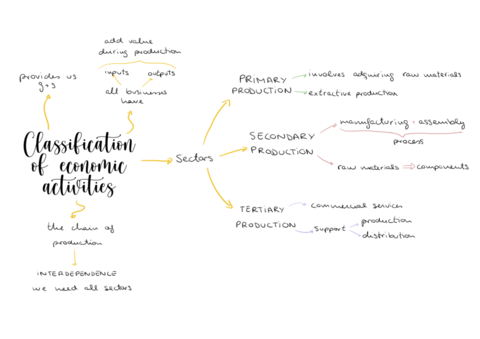 add value
during production
inputs outputs
all businesses
have
provides us
g+s
Classification
of economic
activities
the chain of
production
INTERDEPENDENCE
we need all sectors
Sectors
PRIMARY
PRODUCTION
involves adquiring raw materials
extractive production
SECONDARY
PRODUCTION
manufacturing + assembly
process
raw materials ⇒ components
TERTIARY
PRODUCTION
commercial services
support
production
distribution